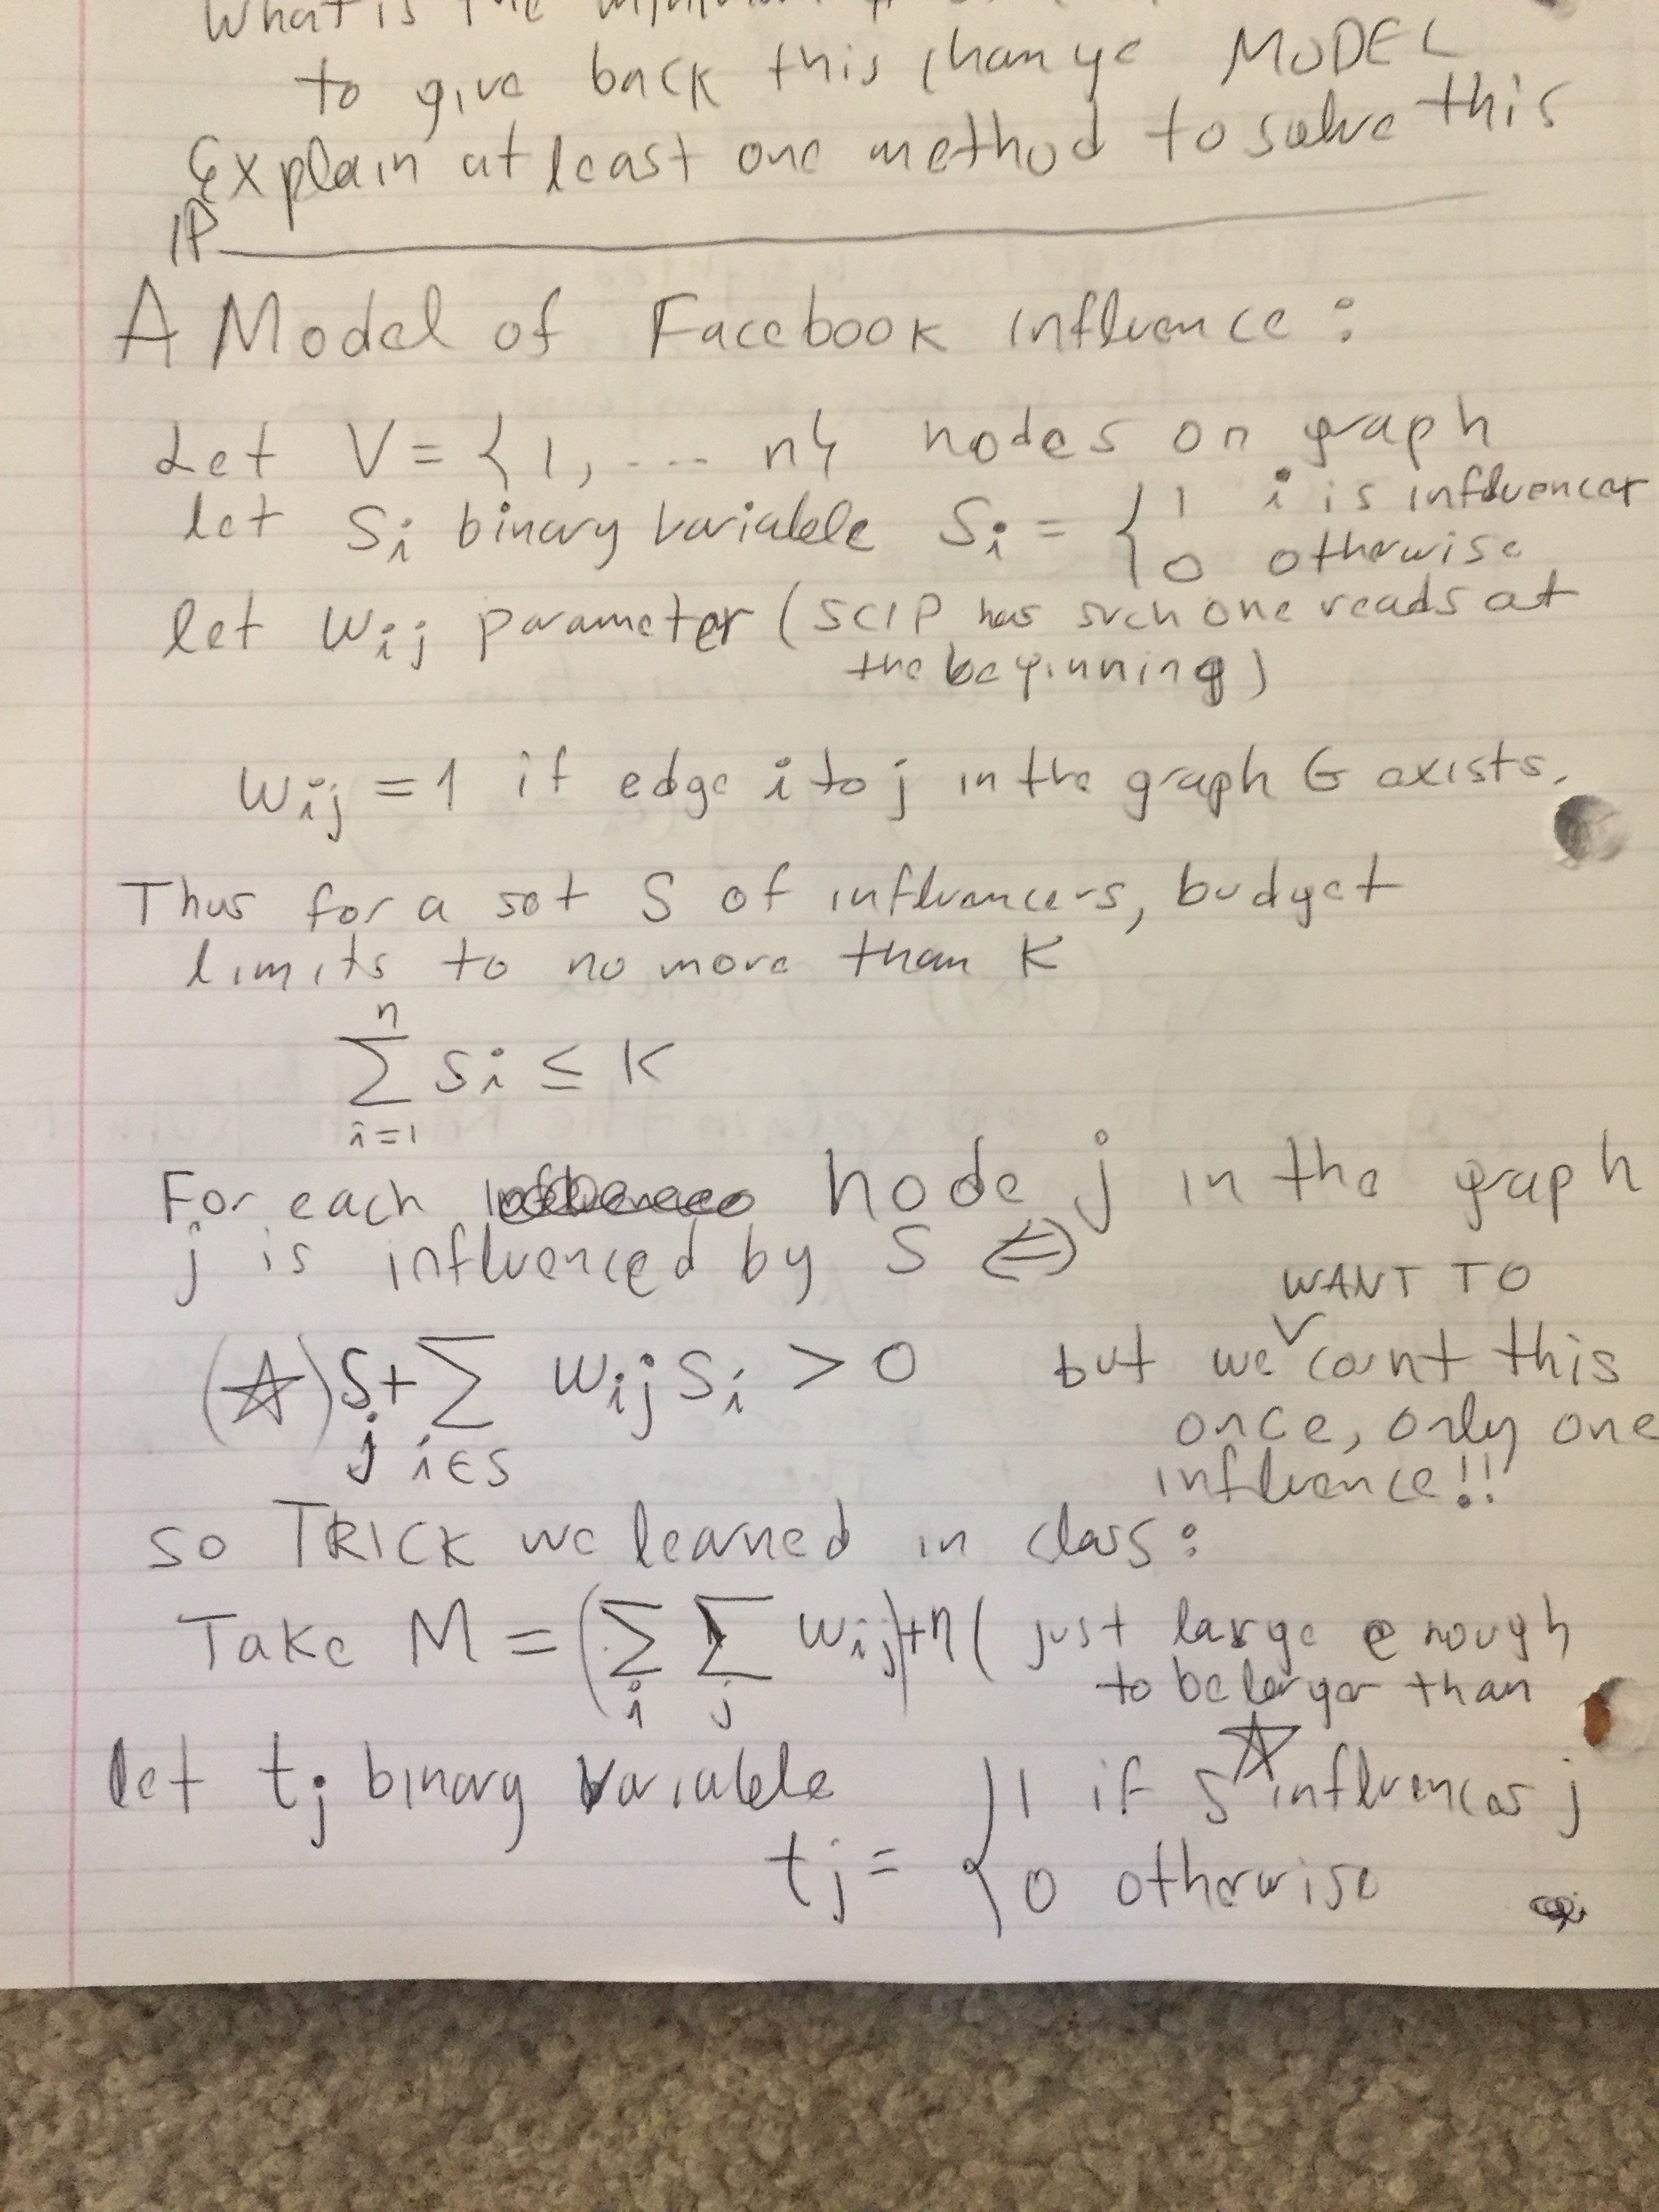 What is the
to give back this change MODEL
Explain at least one method to solve this
IP
A Model of Facebook influence :
Let V = { 1, .... n } nodes on graph
let Si binary variable Si = { 1 i is influencer
0 otherwise
let wij parameter (SCIP has such one reads at
the beginning)
wij = 1 if edge i to j in the graph G exists.
Thus for a set S of influencers, budget
limits to no more than K
n
∑ si ≤ K
i=1
For each node j in the graph
j is influenced by S ⇔
WANT TO
(☆) Sj + ∑ wij si > 0 but we ∨ count this
i∈S once, only one
influence!!
so TRICK we learned in class :
Take M = (∑ ∑ wij) + n ( just large enough
i j to be larger than
☆
let tj binary variable
tj = { 1 if S influences j
0 otherwise